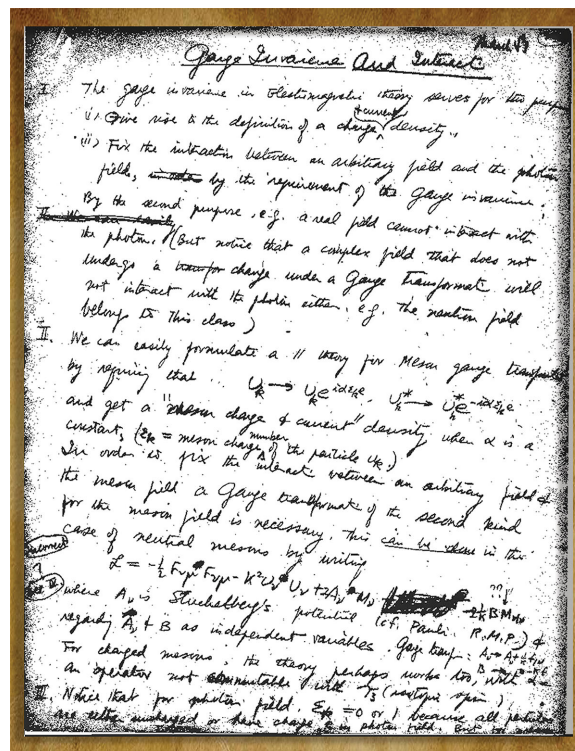 March 47
Gauge Invariance And Interact
I. The gauge invariance in Electromagnetic theory serves for two purp
i) Give rise to the definition of a charge + current density.
ii) Fix the interaction between an arbitrary field and the photon
fields, by the requirement of the Gauge invariance.
By the second purpose, e.g. a real field cannot interact with
the photon. (But notice that a complex field that does not
undergo a change under a Gauge transformat. will
not interact with the photon either. e.g. the neutron field
belongs to this class)
II. We can easily formulate a 11 theory for Meson gauge
by requiring that U_k → U_k e^{iαε_k e}, U_k^* → U_k^* e^{-iαε_k e}
and get a "meson charge & current" density when α is a
constant, (ε_k = meson charge number of the particle U_k.)
In order to fix the interact. between an arbitrary field &
the meson field a Gauge transformat. of the second kind
for the meson field is necessary. This can be done in the
case of neutral mesons by writing
incorrect
?
See IV
where A_ν is Stuckelberg's potential (cf. Pauli R.M.P.) &
regarding A_ν & B as independent variables. Gauge transf.
For charged mesons the theory perhaps works too, with α =
an operator not commutable with τ_3 (isotopic spin)
III. Notice that for photon field, ε_k = 0 or 1 because all particles
are either uncharged or have charge in photon field. But